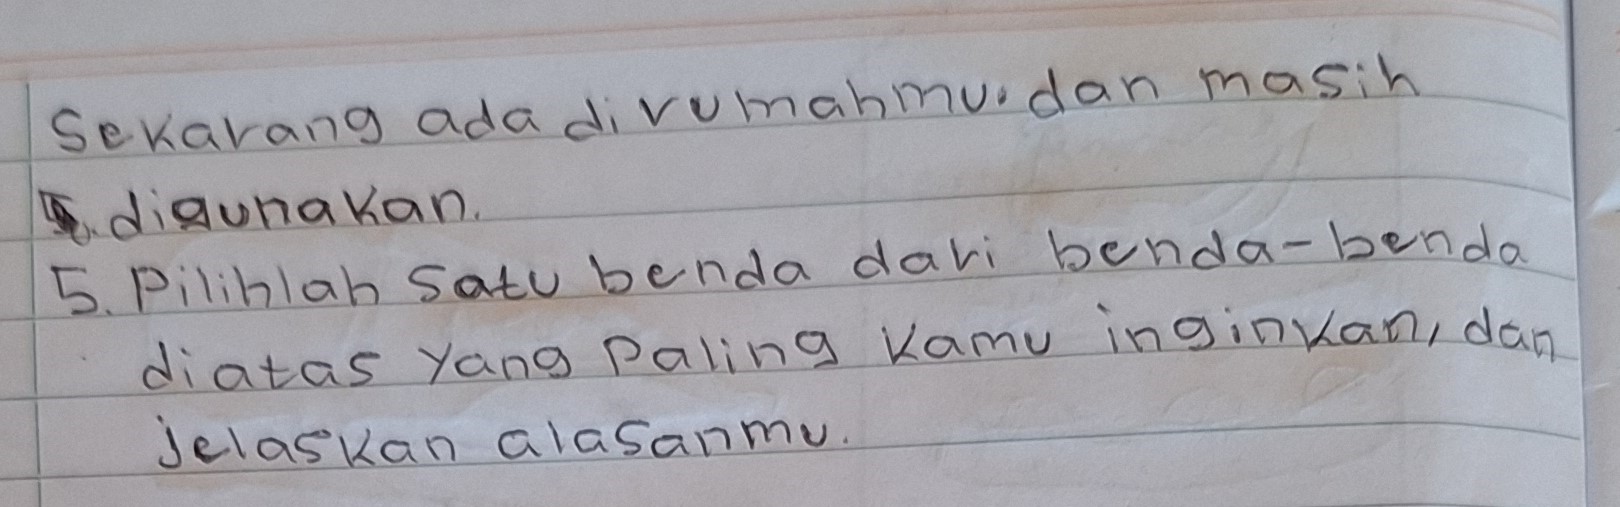 Sekarang ada dirumahmu. dan masih
digunakan.
5. Pilihlah satu benda dari benda-benda
diatas yang paling kamu inginkan, dan
jelaskan alasanmu.